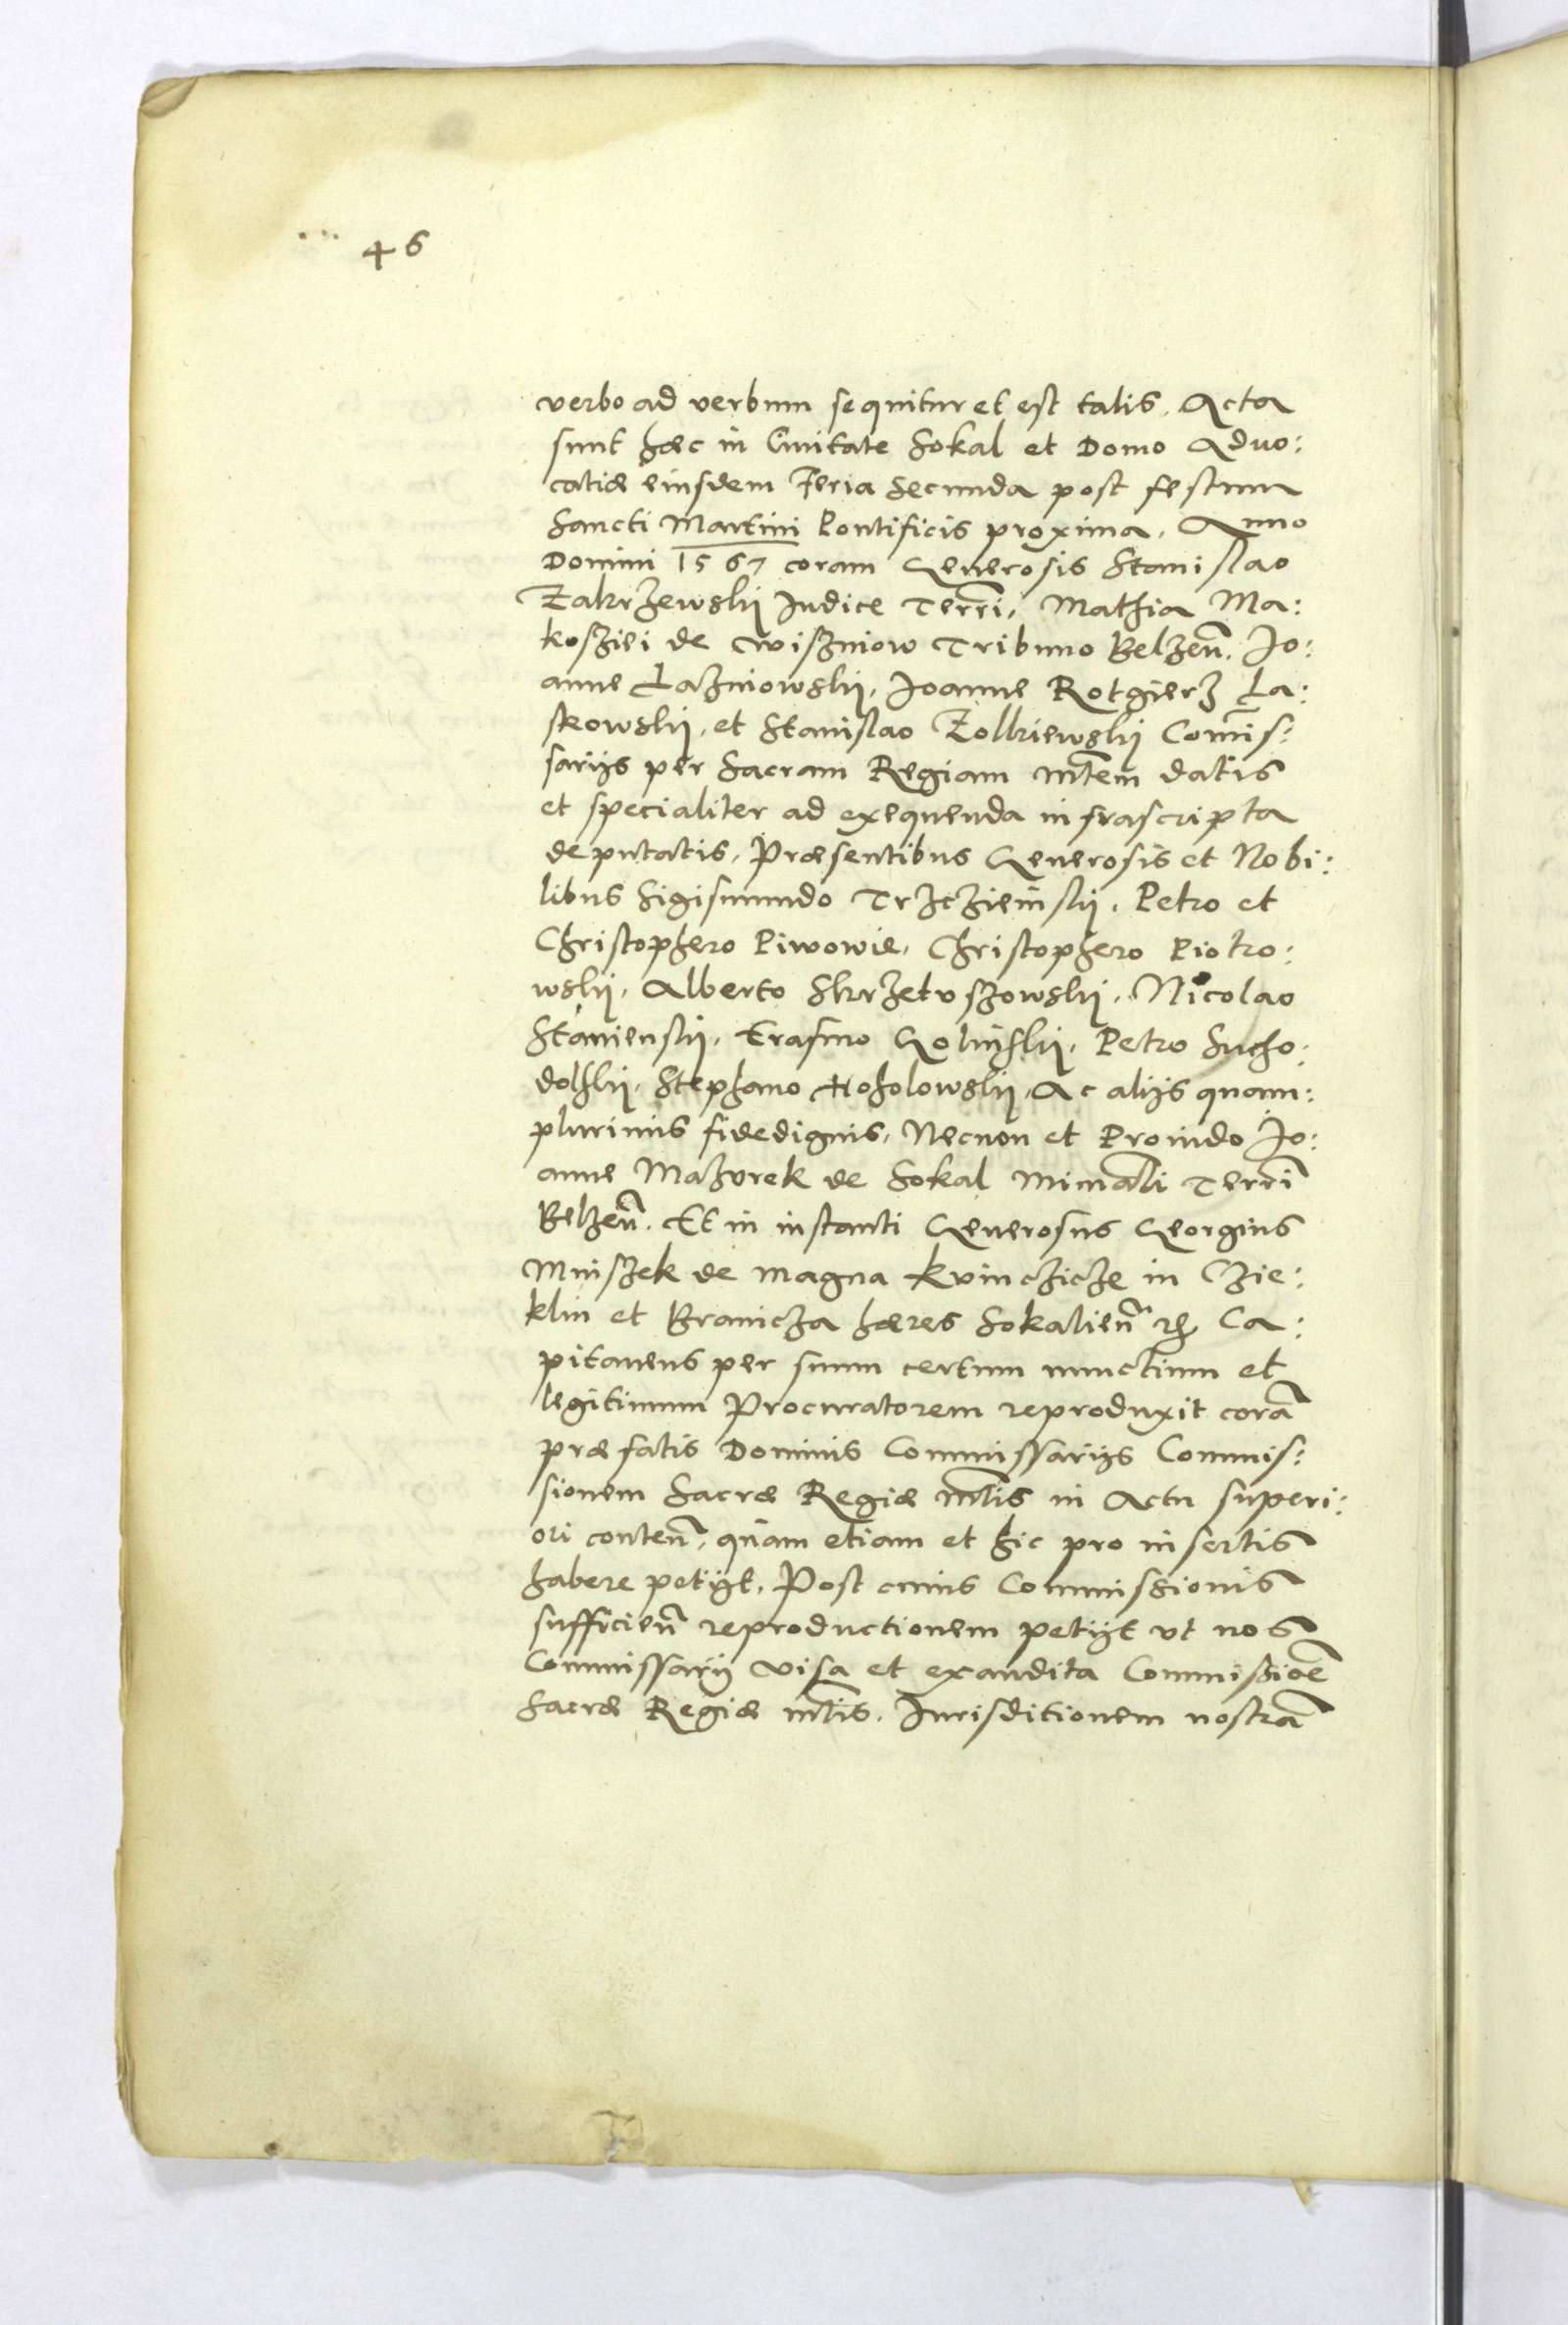 46
verbo ad verbum sequitur et est talis. Acta
sunt hæc in Ciuitate Sokal et Domo Aduo:
catiæ eiusdem Feria Secunda post festum
Sancti Martini Pontificis proxima, Anno
Domini 1567 coram Generosis Stanislao
Zakrzewskij Iudice Terrī, Mathia Ma:
kosziei de Wiszniow Tribuno Belzen̄. Io:
anne Łazniowskij, Ioanne Rotgierz Ła:
skowskij, et Stanislao Zolkiewskij Com̄is:
sarijs per Sacram Regiam Mtem̄ datis
et specialiter ad exequenda infrascripta
deputatis, Præsentibus Generosis et Nobi:
libus Sigismundo Trzczieinskij, Petro et
Christophero Piwowie, Christophero Piotro:
wskij, Alberto Skrzetvszowskij, Nicolao
Stanienskij, Erasmo Golinskij, Petro Sucho:
dolskij, Stephano Hoholowskij, Ac alijs quam:
plurimis fidedignis, Necnon et Prouido Io:
anne Mazvrek de Sokal Minr̄ali Terrī
Belzen̄. Et in instanti Generosus Georgius
Mniszek de magna Kvinczicze in Czie:
klin et Branicza hæres Sokalien̄ Ca:
pitaneus per suum certum nunctium et
legitimum Procuratorem reproduxit corā
præfatis Dominis Commissarijs Commis:
sionem Sacræ Regiæ Mtis̄ in Actu superi:
ori conten̄, quam etiam et hic pro insertis
habere petijt, Post cuius Commissionis
sufficien̄ reproductionem petijt vt nos
Commissarij visa et exaudita Commissioē
Sacræ Regiæ Mtis̄, Iurisditionem nostrā